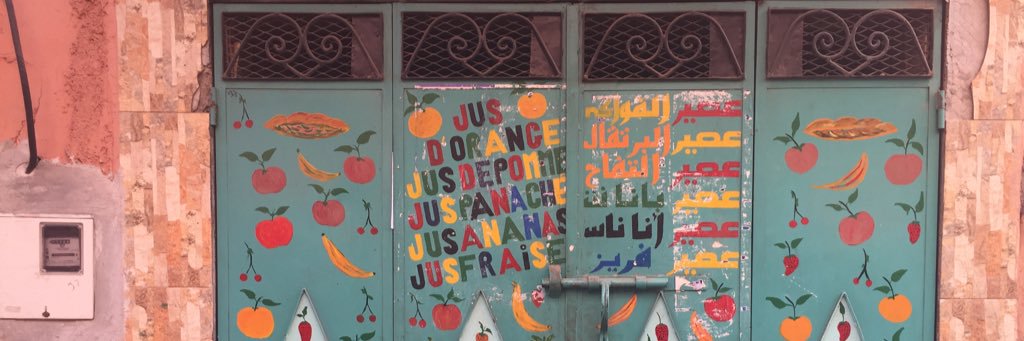 JUS
D'ORANGE
JUS DE POMME
JUS PANACHE
JUS ANANAS
JUS FRAISE
عصير الفواكه
عصير البرتقال
عصير التفاح
عصير بانان
عصير أناناس
عصير فريز